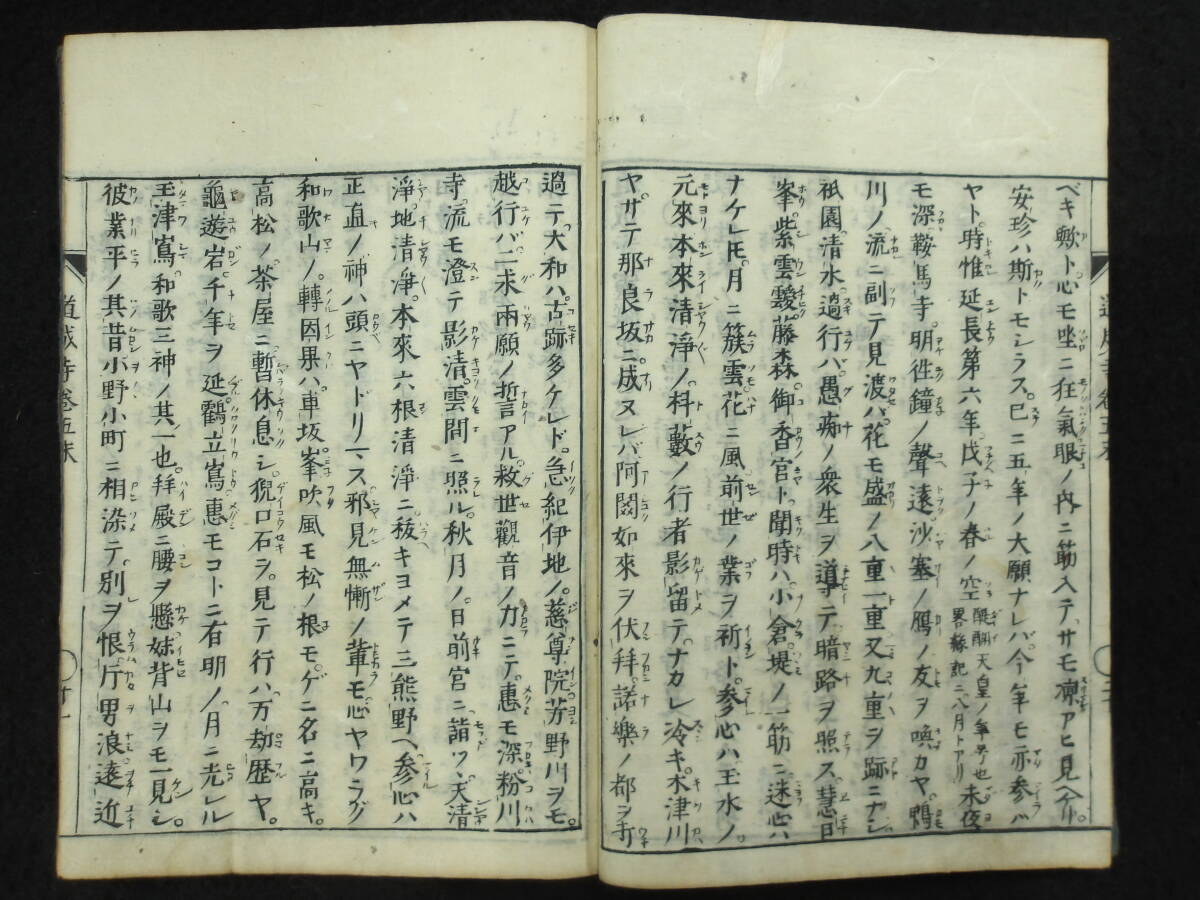 ベキ歟ト心モ坐ニ狂氣眼ノ内ニ筋入テサモ凛アヒ見ヘケル。
安珍ハ斯トモシラス。巳ニ五年ノ大願ナレバ今年モ亦参バ
ヤト。時惟延長第六年戊子ノ春ノ空 醍醐天皇ノ年号也 界縁記ニ八月トアリ 未夜
モ深鞍馬寺。明徃鐘ノ聲遠沙塞ノ鴈ノ友ヲ喚カヤ。鴨
川ノ流ニ副テ見渡バ。花モ盛ノ八重一重又九重ヲ跡ニナシ
祇園清水過行バ。愚痴ノ衆生ヲ導テ暗路ヲ照ス慧日
峯。紫雲靉藤森。御香宮ト聞時ハ。小倉堤ノ一筋ニ。迷心ハ
ナケレ𪜈。月ニ簇雲花ニ風前世ノ業ヲ祈ト。参心ハ玉水ノ。
元來本來清淨ノ。抖藪ノ行者影留テ。ナカレ冷キ。木津川
ヤ。サテ那良坂ニ成ヌレバ。阿閦如來ヲ伏拜。諾樂ノ都ヲ打
過テ。大和ハ。古跡多ケレド。急紀伊地ノ。慈尊院芳野川ヲモ。
越行バ。二求兩願ノ誓アル。救世觀音ノ力ニテ。惠モ深粉川
寺。流モ澄テ影清。雲間ニ照ル。秋月ノ。日前宮ニ詣ツヽ。天清
淨地清淨。本來六根清淨ニ祓キヨメテ三熊野ヘ。参心ハ
正直ノ神ハ頭ニヤドリマス邪見無慚ノ輩モ。心ヤワラグ
和歌山ノ。轉因果ハ。車坂峯吹風モ松ノ根モ。ゲニ名ニ高キ。
高松ノ茶屋ニ暫休息シ。猊口石ヲ。見テ行バ。万劫歴ヤ。
龜遊岩。千年ヲ延鸖立嶌惠モコトニ有明ノ。月ニ光ル
玉津嶌和歌三神ノ其一也。拜殿ニ腰ヲ懸。妹背山ヲモ一見シ。
彼業平ノ其昔小野小町ニ相染テ。別ヲ恨片男浪遠近
道成寺巻五末
廿一